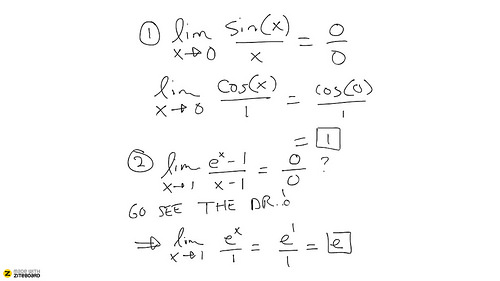 ① lim x→0 sin(x)/x = 0/0
lim x→0 cos(x)/1 = cos(0)/1
= 1
② lim x→1 e^x-1/x-1 = 0/0 ?
GO SEE THE DR..!
⇒ lim x→1 e^x/1 = e^1/1 = e
MADE WITH
ZITEBOARD